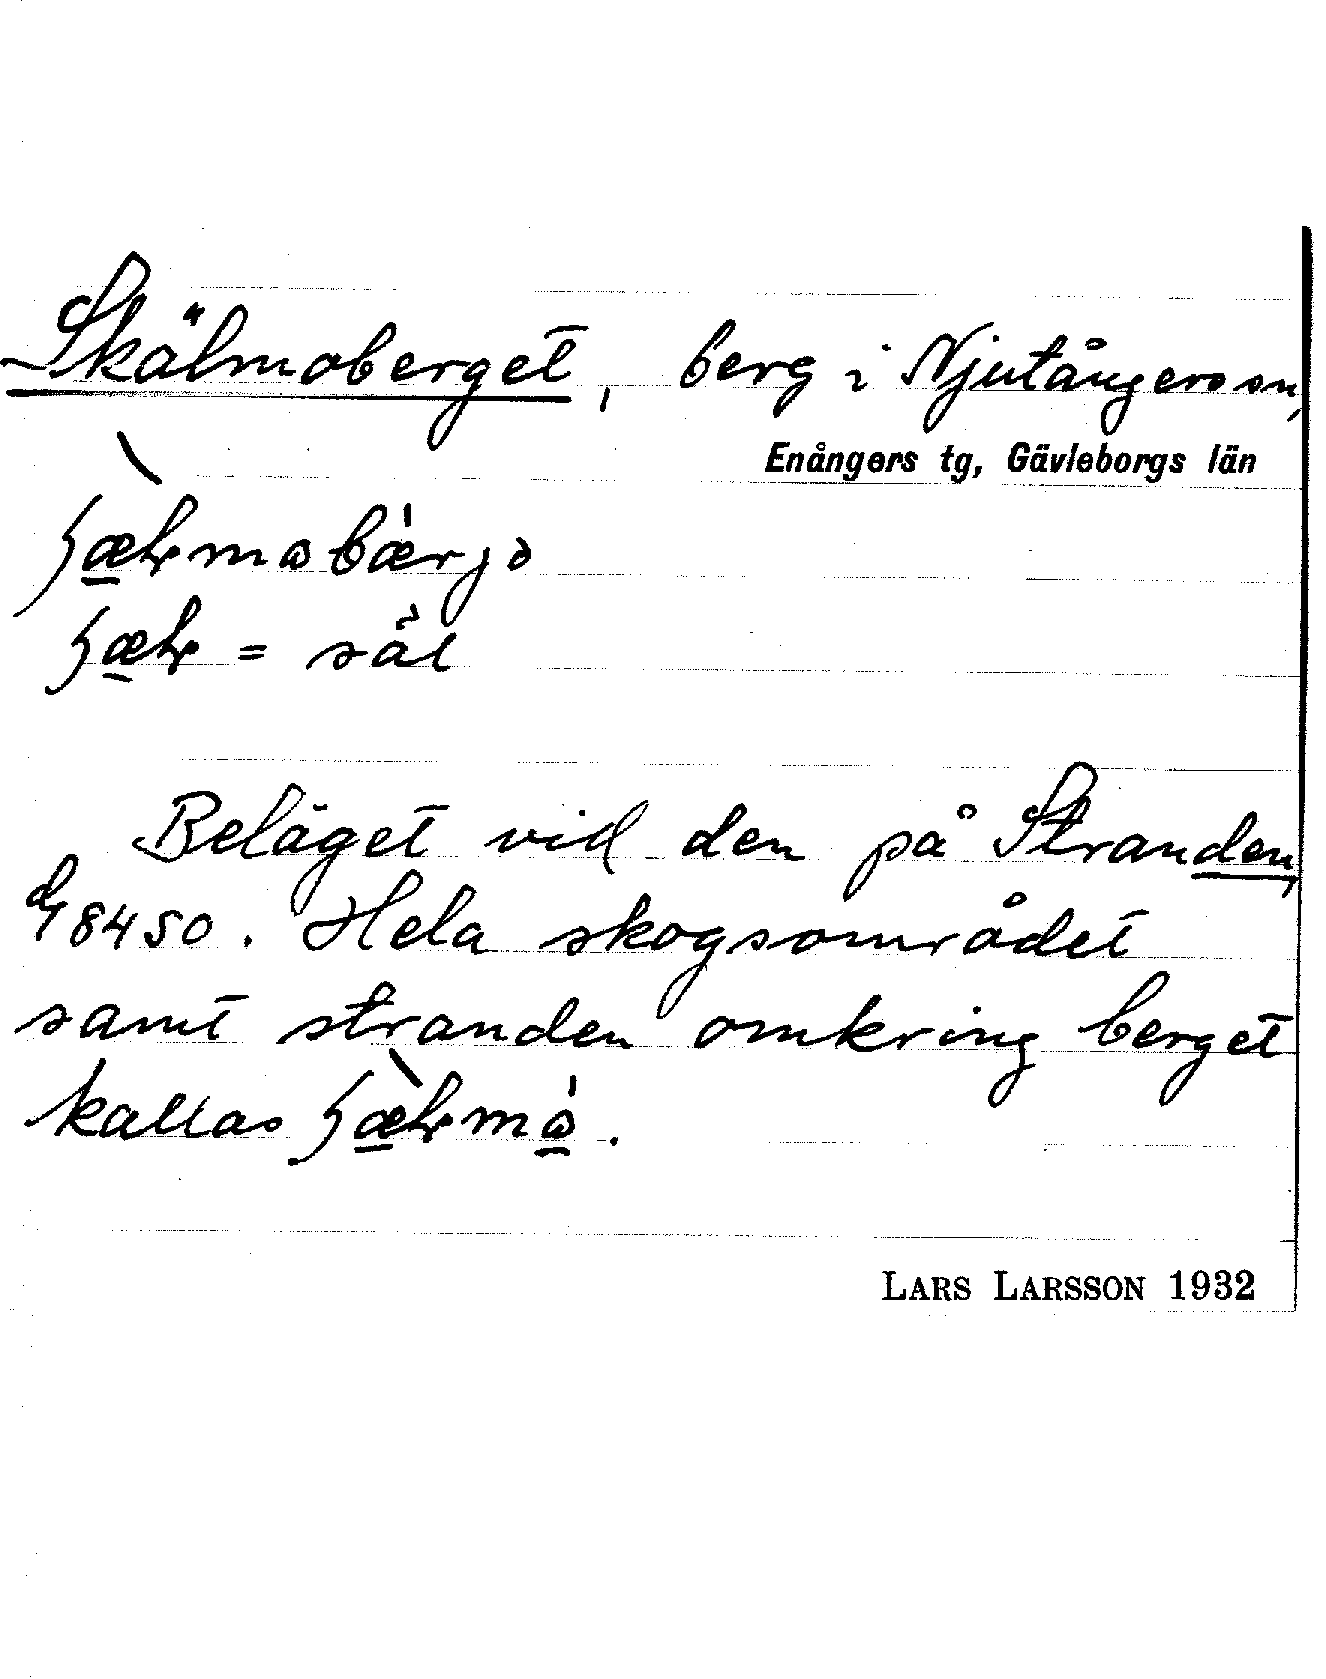 Skälmoberget, berg i Njutångers sn,
Enångers tg, Gävleborgs län
= säl
Beläget vid den på Stranden,
8450. Hela skogsområdet
samt stranden omkring berget
kallas
LARS LARSSON 1932